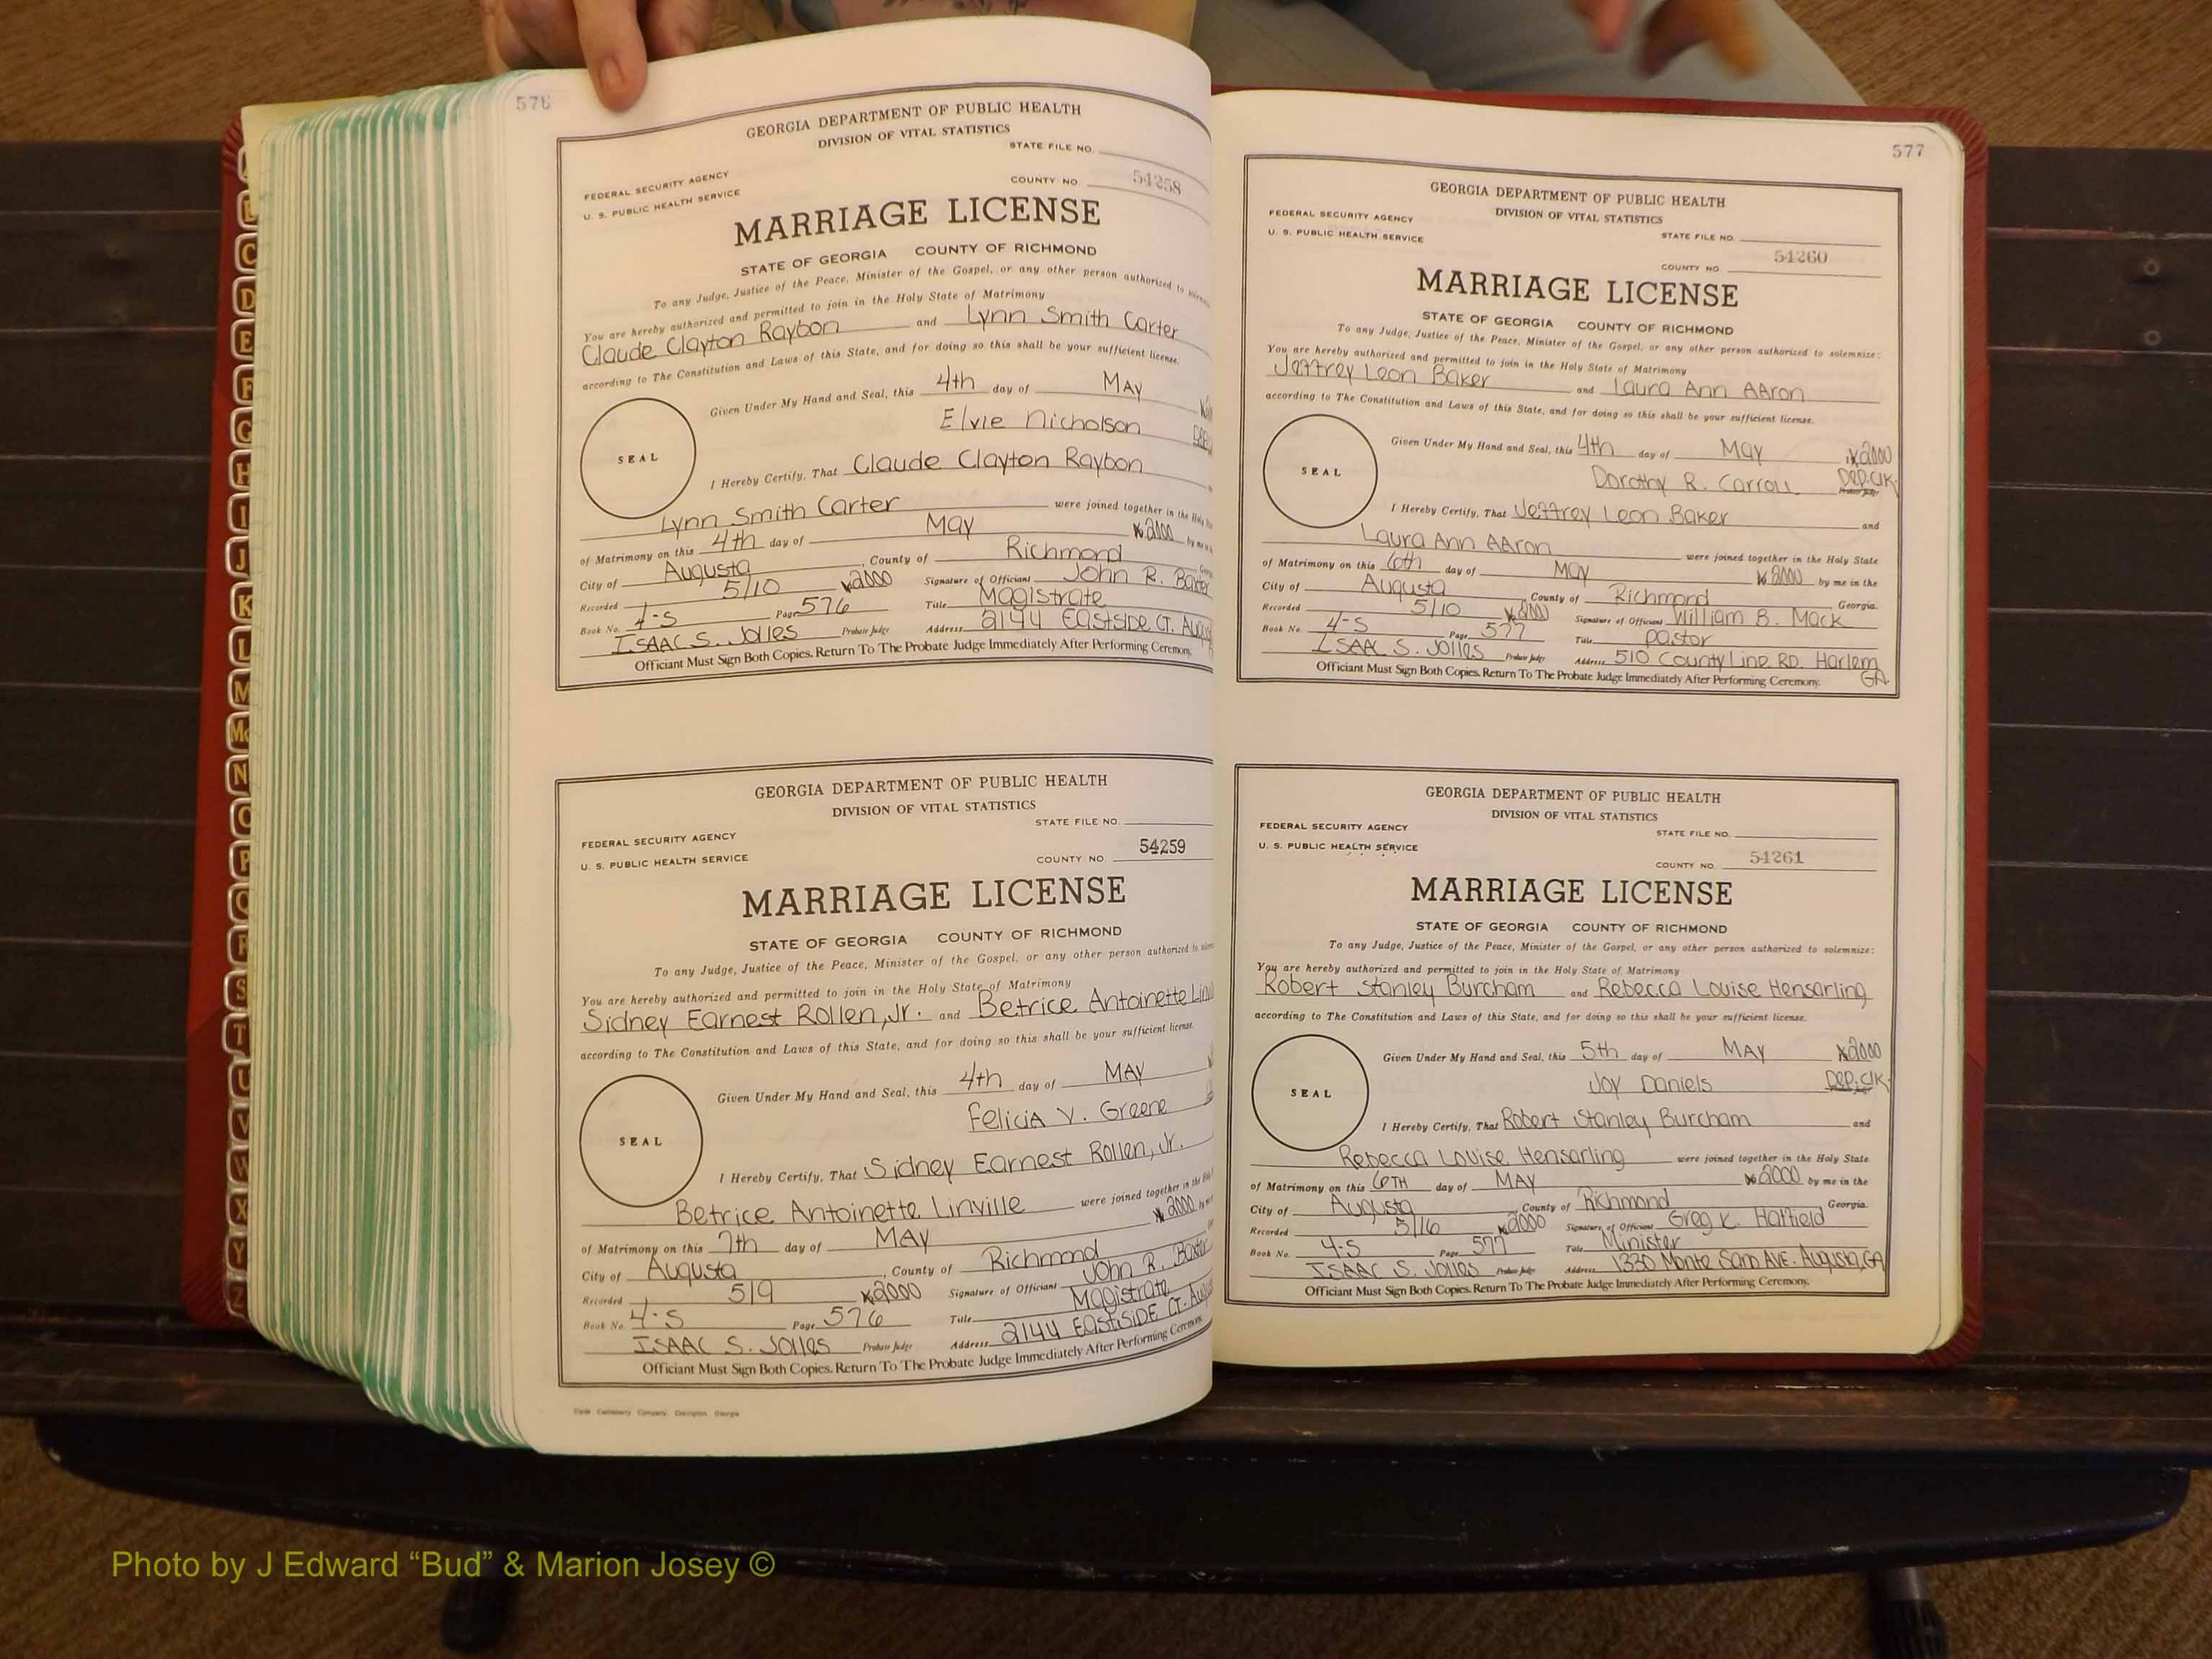 576
GEORGIA DEPARTMENT OF PUBLIC HEALTH
DIVISION OF VITAL STATISTICS
STATE FILE NO.
FEDERAL SECURITY AGENCY
U. S. PUBLIC HEALTH SERVICE
COUNTY NO. 54258
MARRIAGE LICENSE
STATE OF GEORGIA COUNTY OF RICHMOND
To any Judge, Justice of the Peace, Minister of the Gospel, or any other person authorized to
You are hereby authorized and permitted to join in the Holy State of Matrimony
Claude Clayton Raybon and Lynn Smith Carter
according to The Constitution and Laws of this State, and for doing so this shall be your sufficient license.
Given Under My Hand and Seal, this 4th day of MAY
Elvie Nicholson
SEAL
I Hereby Certify, That Claude Clayton Raybon
Lynn Smith Carter were joined together in the
of Matrimony on this 4th day of May 2000 by me
City of Augusta, County of Richmond
Recorded 5/10 2000 Signature of Officiant John R. Baxter
Book No. 4-S Page 576 Title Magistrate
ISAAC S. Jolles Probate Judge Address 2144 EastSide CT.
Officiant Must Sign Both Copies. Return To The Probate Judge Immediately After Performing Ceremony.
GEORGIA DEPARTMENT OF PUBLIC HEALTH
DIVISION OF VITAL STATISTICS
STATE FILE NO.
FEDERAL SECURITY AGENCY
U. S. PUBLIC HEALTH SERVICE
COUNTY NO. 54259
MARRIAGE LICENSE
STATE OF GEORGIA COUNTY OF RICHMOND
To any Judge, Justice of the Peace, Minister of the Gospel, or any other person authorized to
You are hereby authorized and permitted to join in the Holy State of Matrimony
Sidney Earnest Rollen, Jr. and Betrice Antoinette
according to The Constitution and Laws of this State, and for doing so this shall be your sufficient license.
Given Under My Hand and Seal, this 4th day of MAY
Felicia V. Greene
SEAL
I Hereby Certify, That Sidney Earnest Rollen, Jr.
Betrice Antoinette Linville were joined together in the
of Matrimony on this 7th day of MAY 2000
City of Augusta, County of Richmond
Recorded 5/9 2000 Signature of Officiant John R. Baxter
Book No. 4-S Page 576 Title Magistrate
ISAAC S. Jolles Probate Judge Address 2144 EastSIDE CT.
Officiant Must Sign Both Copies. Return To The Probate Judge Immediately After Performing Ceremony.
577
GEORGIA DEPARTMENT OF PUBLIC HEALTH
DIVISION OF VITAL STATISTICS
FEDERAL SECURITY AGENCY
U. S. PUBLIC HEALTH SERVICE
STATE FILE NO.
COUNTY NO. 54260
MARRIAGE LICENSE
STATE OF GEORGIA COUNTY OF RICHMOND
To any Judge, Justice of the Peace, Minister of the Gospel, or any other person authorized to solemnize:
You are hereby authorized and permitted to join in the Holy State of Matrimony
Jeffrey Leon Baker and Laura Ann AAron
according to The Constitution and Laws of this State, and for doing so this shall be your sufficient license.
Given Under My Hand and Seal, this 4th day of May 2000
Dorothy R. Carroll DEP. CLK.
SEAL
I Hereby Certify, That Jeffrey Leon Baker and
Laura Ann AAron were joined together in the Holy State
of Matrimony on this 6th day of MAY 2000 by me in the
City of Augusta, County of Richmond Georgia.
Recorded 5/10 2000 Signature of Officiant William B. Mack
Book No. 4-S Page 577 Title pastor
ISAAC S. Jolles Probate Judge Address 510 County Line RD. Harlem GA.
Officiant Must Sign Both Copies. Return To The Probate Judge Immediately After Performing Ceremony.
GEORGIA DEPARTMENT OF PUBLIC HEALTH
DIVISION OF VITAL STATISTICS
FEDERAL SECURITY AGENCY
U. S. PUBLIC HEALTH SERVICE
STATE FILE NO.
COUNTY NO. 54261
MARRIAGE LICENSE
STATE OF GEORGIA COUNTY OF RICHMOND
To any Judge, Justice of the Peace, Minister of the Gospel, or any other person authorized to solemnize:
You are hereby authorized and permitted to join in the Holy State of Matrimony
Robert Stanley Burcham and Rebecca Louise Hensarling
according to The Constitution and Laws of this State, and for doing so this shall be your sufficient license.
Given Under My Hand and Seal, this 5th day of MAY 2000
Joy Daniels DEP. CLK.
SEAL
I Hereby Certify, That Robert Stanley Burcham and
Rebecca Louise Hensarling were joined together in the Holy State
of Matrimony on this 6TH day of MAY 2000 by me in the
City of Augusta, County of Richmond Georgia.
Recorded 5/16 2000 Signature of Officiant Greg K. Hatfield
Book No. 4-S Page 577 Title Minister
ISAAC S. Jolles Probate Judge Address 1330 Monte Sano AVE. Augusta, GA
Officiant Must Sign Both Copies. Return To The Probate Judge Immediately After Performing Ceremony.
C
D
E
F
G
H
I
J
K
L
M
Mc
N
O
P
Q
R
S
T
U
V
W
X
Y
Z
Photo by J Edward “Bud” & Marion Josey ©